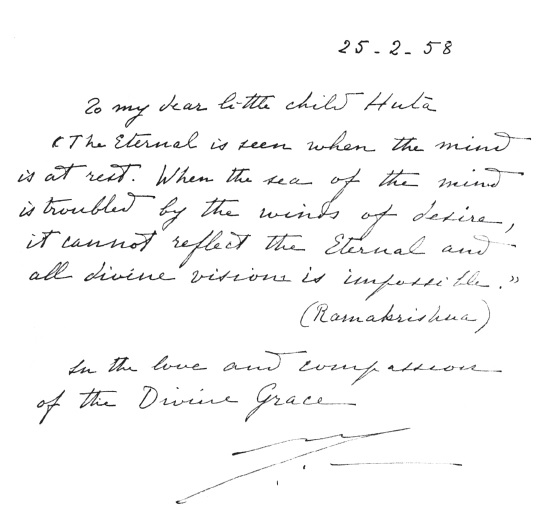 25-2-58
To my dear little child Huta
"The Eternal is seen when the mind
is at rest. When the sea of the mind
is troubled by the winds of desire,
it cannot reflect the Eternal and
all divine vision is impossible."
(Ramakrishna)
In the love and compassion
of the Divine Grace